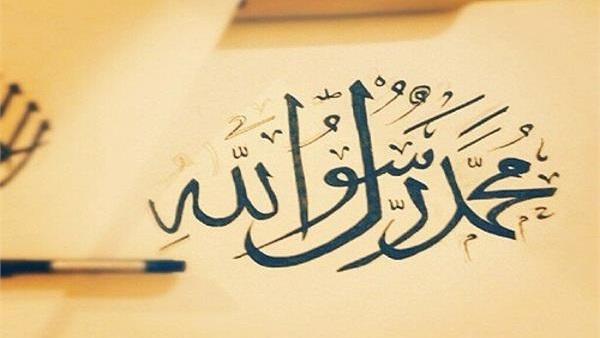 مُحَمَّد رَسُولُ اللَّهِ